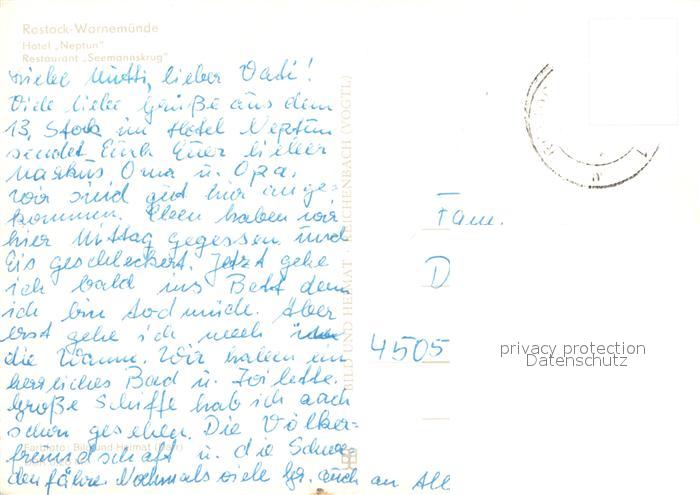 Rostock-Warnemünde
Hotel „Neptun"
Restaurant „Seemannskrug"
Liebe Mutti, lieber Vati!
Viele liebe Grüße aus dem
13. Stock im Hotel Neptun
sendet Euch Euer lieber
Markus Oma u. Opa.
Wir sind gut hier ange-
kommen. Eben haben wir
hier Mittag gegessen und
Eis geschleckert. Jetzt gehe
ich bald ins Bett denn
ich bin todmüde. Aber
erst gehe ich noch in
die Wanne. Wir haben ein
herrliches Bad u. Toilette.
Große Schiffe hab ich auch
schon gesehen. Die Völker-
freundschaft u. die Schwe-
denfähre. Nochmals viele Gr. auch an All
Farbfoto: Bild und Heimat
BILD UND HEIMAT REICHENBACH (VOGTL)
Fam.
D
4505
privacy protection
Datenschutz